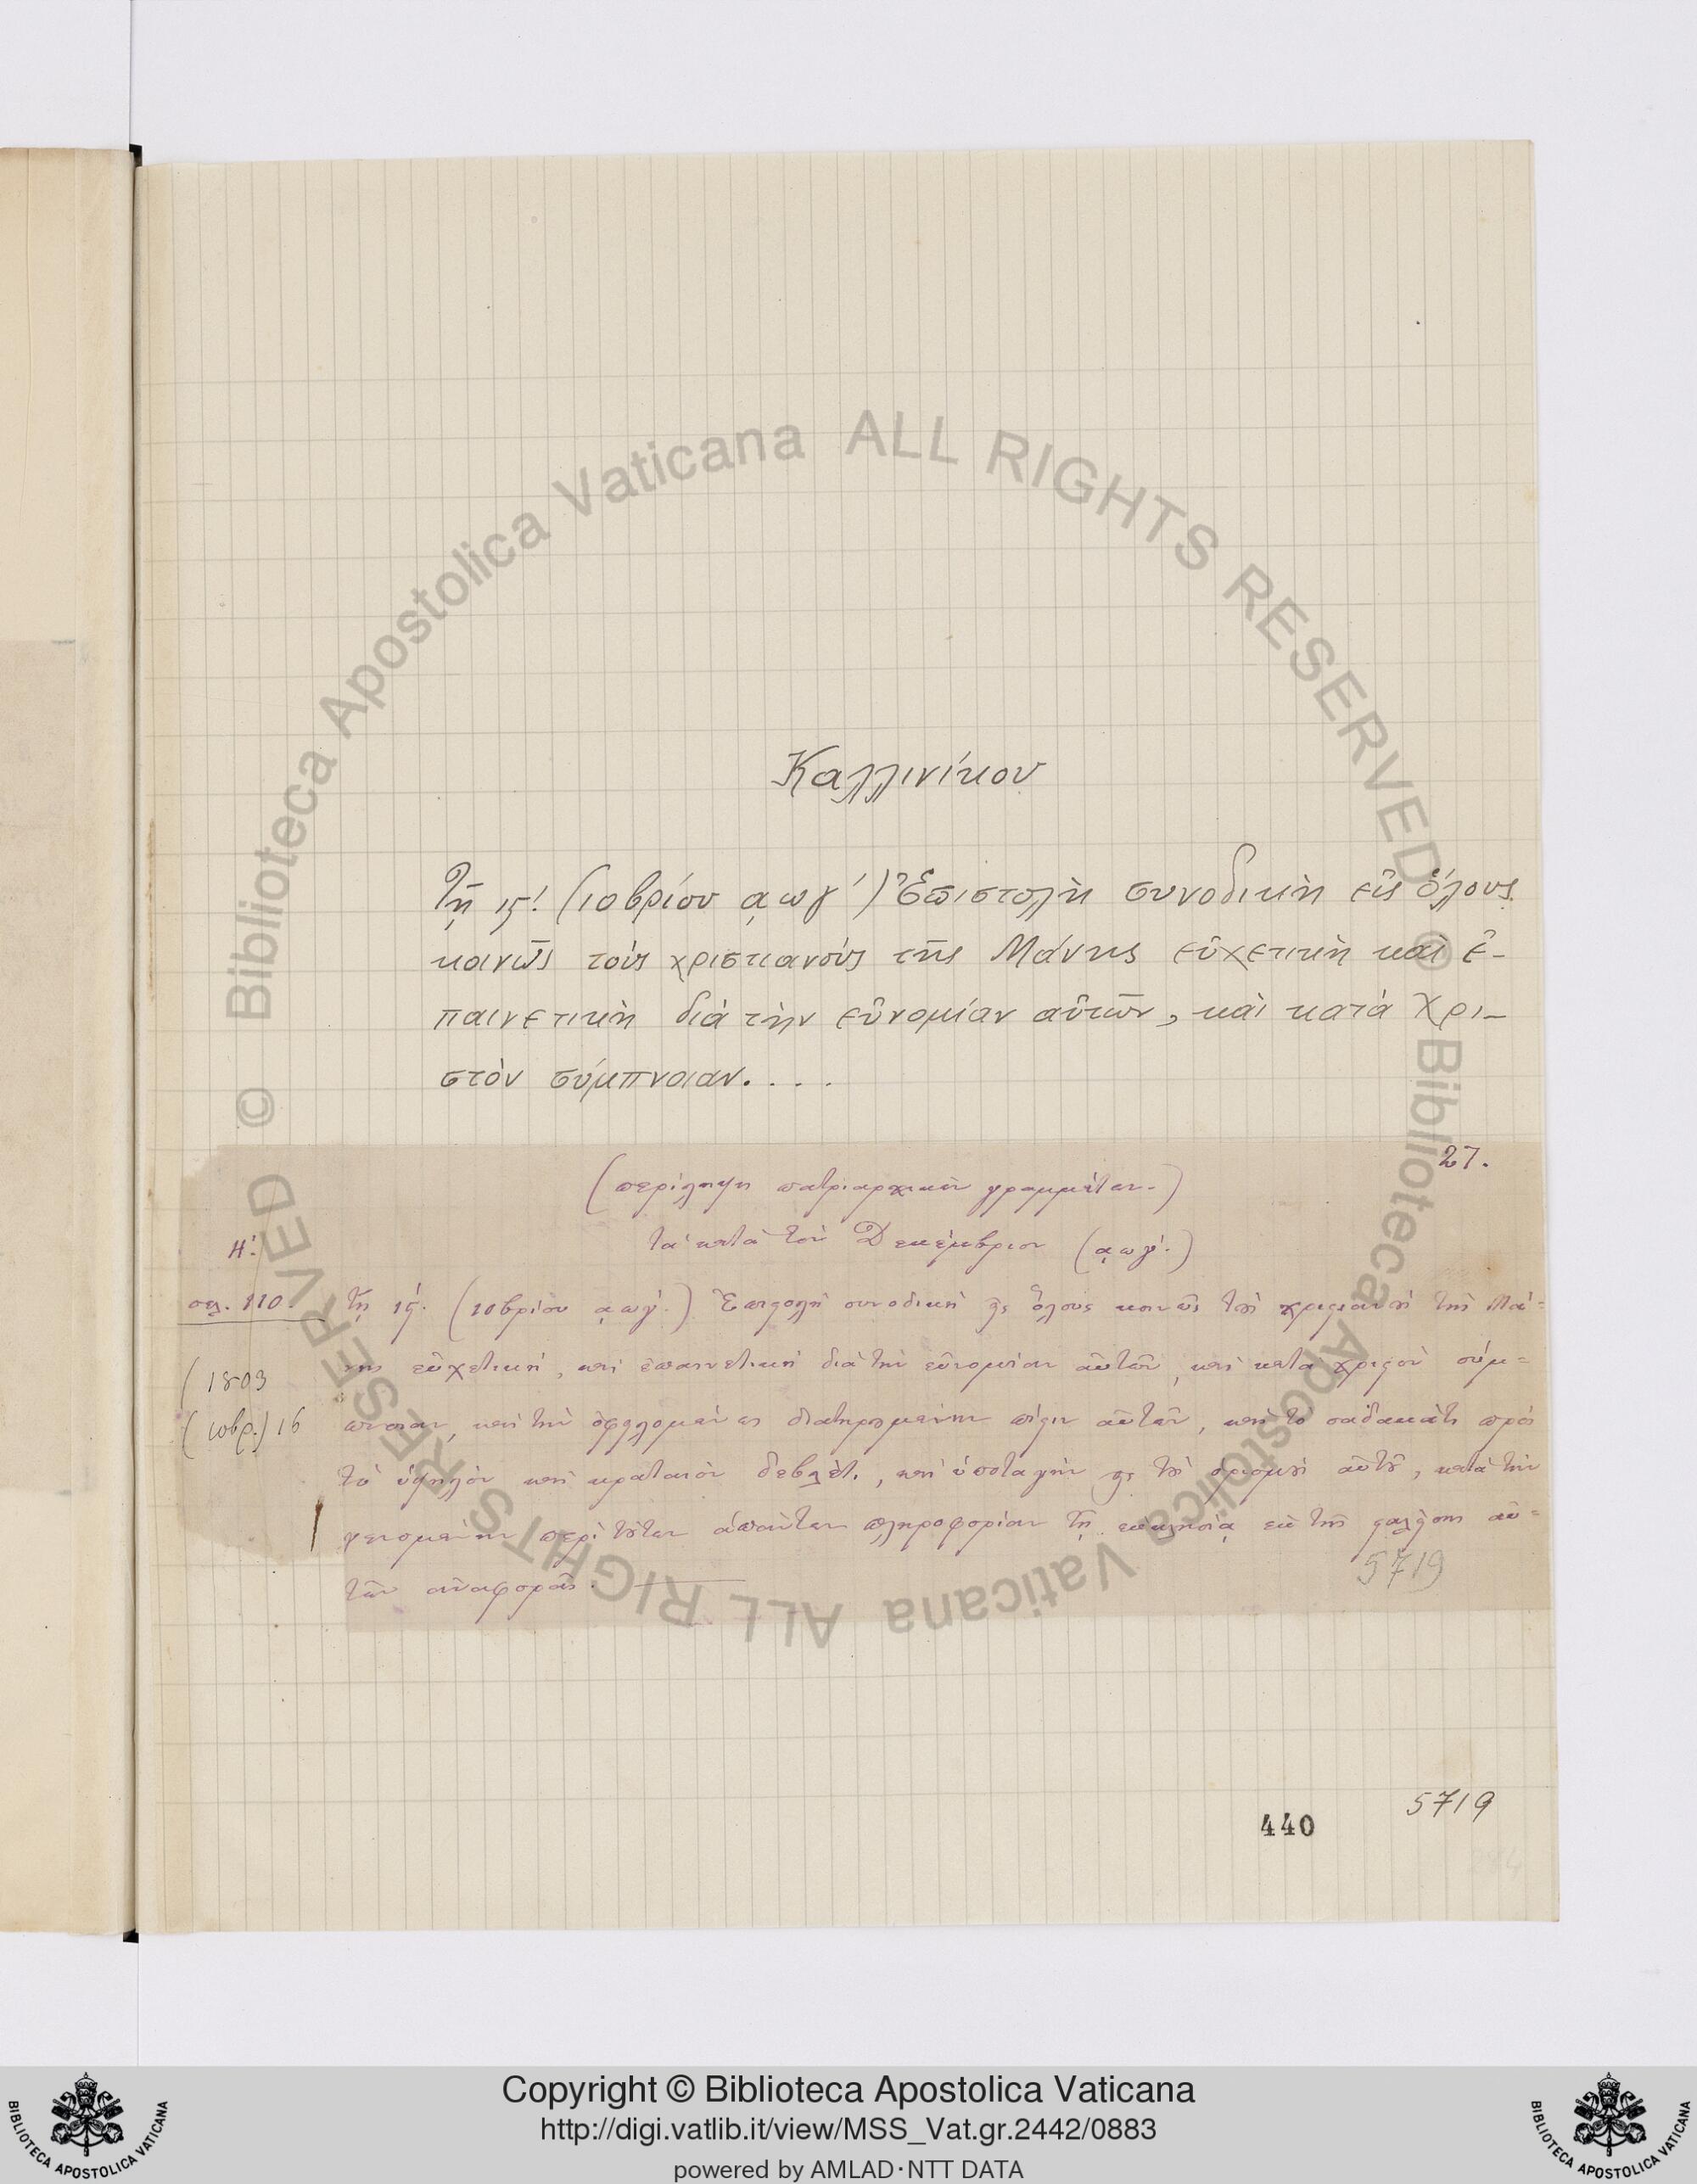 Καλλινίκου
Τῇ ιϛ΄. (10βρίου ͵αωγ΄) Ἐπιστολὴ συνοδικὴ εἰς ὅλους
κοινῶς τοὺς χριστιανοὺς τῆς Μάνης εὐχετικὴ καὶ ἐ-
παινετικὴ διὰ τὴν εὐνομίαν αὐτῶν, καὶ κατὰ Χρι-
στὸν σύμπνοιαν....
27.
(περίληψη πατριαρχικῶν γραμμάτων.)
τὰ κατὰ τὸν Δεκέμβριον (͵αωγ΄.)
Η΄.
σελ. 110.
τῇ ιϛ΄. (10βρίου ͵αωγ΄.) Ἐπιστολὴ συνοδικὴ εἰς ὅλους κοινῶς τοὺς χριστιανοὺς τῆς Μά=
νης εὐχετικὴ, καὶ ἐπαινετικὴ διὰ τὴν εὐνομίαν αὐτῶν, καὶ κατὰ χριστὸν σύμ=
(1803
(10βρ.) 16
πνοιαν, καὶ τὴν ὀφειλομένως διατηρουμένην πίστιν αὐτῶν, καὶ τὸ σαδακάτι πρὸς
τὸ ὑψηλὸν καὶ κραταιὸν δεβλέτι, καὶ ὑποταγὴν εἰς τοὺς ὁρισμοὺς αὐτοῦ, κατὰ τὴν
γενομένην περὶ τούτων ἁπάντων πληροφορίαν τῇ ἐκκλησίᾳ ἐκ τῆς σταλείσης αὐ=
τῶν ἀναφορᾶς.
5719
5719
440
Copyright © Biblioteca Apostolica Vaticana
http://digi.vatlib.it/view/MSS_Vat.gr.2442/0883
powered by AMLAD·NTT DATA
BIBLIOTECA APOSTOLICA VATICANA
BIBLIOTECA APOSTOLICA VATICANA
© Biblioteca Apostolica Vaticana ALL RIGHTS RESERVED
© Biblioteca Apostolica Vaticana ALL RIGHTS RESERVED